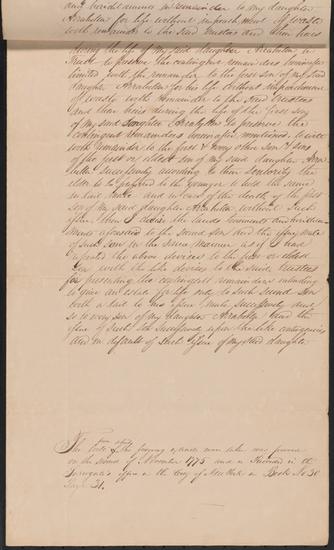 and hereditaments in remainder to my daughter
Arrabella for life without impeachment of waste
with remainder to the said trustees and their heirs
during the life of my said daughter Arrabella in
trust to preserve the contingent remainders hereinafter
limited with the remainder to the first son of my said
daughter Arrabella for his life without impeachment
of waste with remainder to the said trustees
and their heirs during the life of the first son
of my said daughter Arrabella to preserve the
contingent remainders hereinafter mentioned to wit
with remainder to the first & every other son & sons
of the first or eldest son of my said daughter Arra
bella successively according to their seniority the
elder to be preferred to the younger to hold the same
in tail male and in case of the death of the first
son of my said daughter Arrabella without such
issue then I devise the lands tenements and heredita
ments aforesaid to the second son and the issue male
of such son in the same manner as if I had
repeated the above devises to the first or eldest
son with the like devises to the said trustees
for preserving the contingent remainders intending
to give an estate for life only to such second son
with a tail to his issue male successively and
so to every son of my daughter Arrabella and the
issue of such son successively upon the like contingencies
and in default of such issue of my said daughter
The of the foregoing extracts were taken and proved
on the second of November 1775 and is Recorded in the
Surrogate's office in the City of New York in Book No 30
page 31.